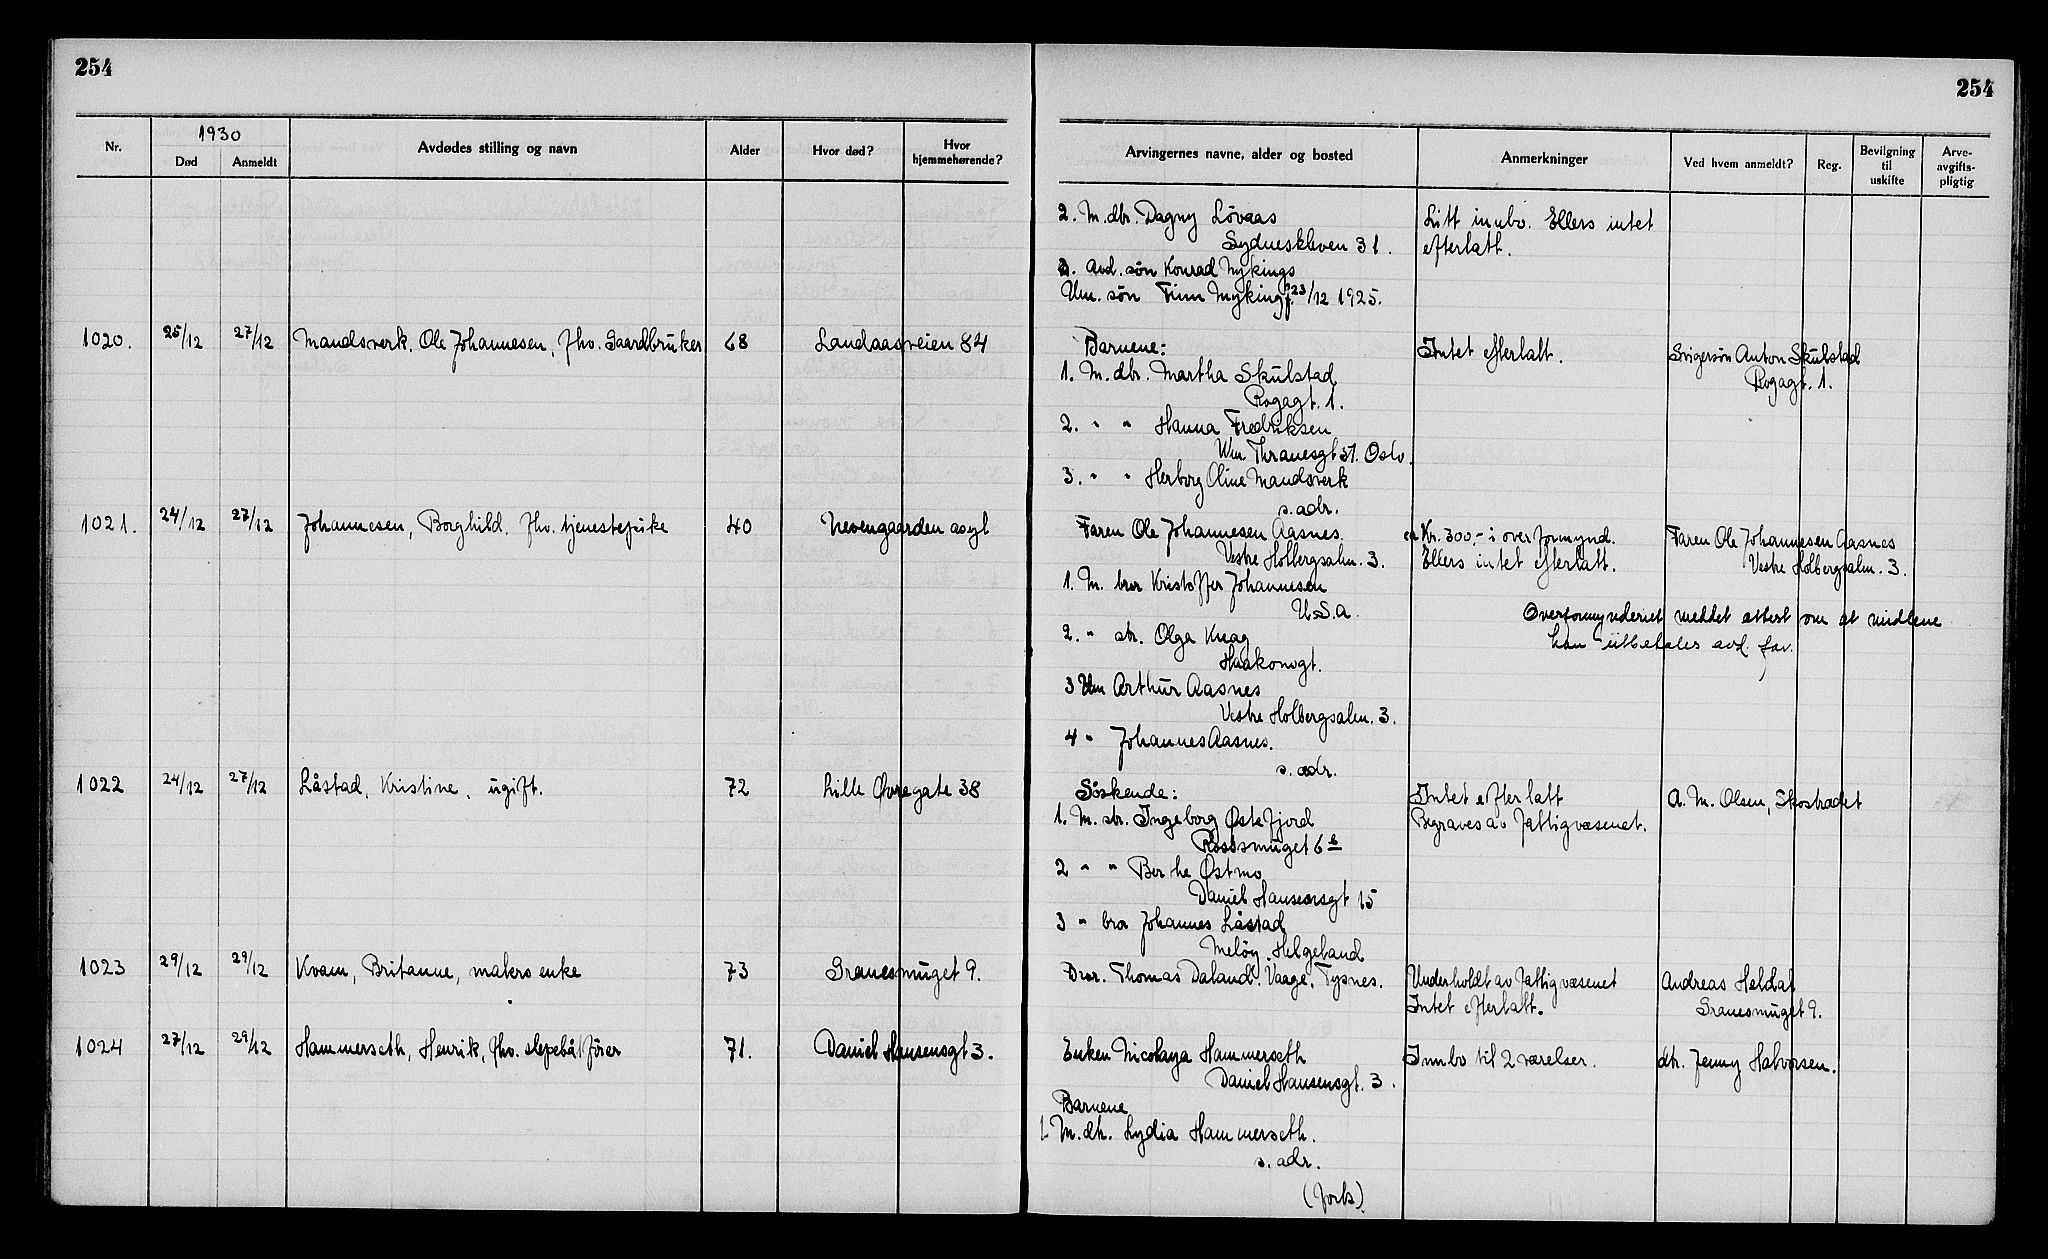 254
254
1930
Nr.
Død
Anmeldt
Avdødes stilling og navn
Alder
Hvor død?
Hvor hjemmehørende?
Arvingernes navne, alder og bosted
Anmerkninger
Ved hvem anmeldt?
Reg.
Bevilgning til uskifte
Arve-avgifts-pligtig
2. M. dtr. Dagny Lövaas
Sydneskleven 31.
Litt innbo. Ellers intet
efterlatt.
3. Avd. søn Konrad Nykings
Um. søn Finn Nyking f. 23/12 1925.
1020. 25/12 27/12 Mandsverk, Ole Johannesen, fhv. Gaardbruker 68 Landaasveien 84
Barnene:
1. M. dtr. Martha Skulstad
Rogagt. 1.
2. " " Hanna Fredriksen
Wm. Thranesgt 37. Oslo.
3. " " Herborg Oline Mandsverk
s. adr.
Intet efterlatt.
Svigersøn Anton Skulstad
Rogagt. 1.
1021. 24/12 27/12 Johannesen, Borghild, fhv. tjenestepike 40 Nevengaarden asyl
Faren Ole Johannesen Aasnes.
Vestre Holbergsalm. 3.
1. M. bror Kristoffer Johannesen
U.S.A.
2. " str. Olga Knag
Haakonsgt.
3 Um Arthur Aasnes
Vestre Holbergsalm. 3.
4 " Johannes Aasnes.
s. adr.
ca Kr. 300,- i overformynd.
Ellers intet efterlatt.
Faren Ole Johannesen Aasnes
Vestre Holbergsalm. 3.
Overformynderiet meddelt attest om at midlene
kan utbetales avd. far.
1022 24/12 27/12 Låstad, Kristine, ugift. 72 Lille Øvregate 38
Søskende:
1. M. str. Ingeborg Østefjord
Rossmuget 6 b
2 " " Berthe Østmo
Daniel Hansensgt 15
3 " bror Johannes Låstad
Meløy, Helgeland
Intet efterlatt
Begraves av Fattigvæsenet.
A. M. Olsen, Skostredet
1023 29/12 29/12 Kvam, Britanne, målers enke 73 Granesmuget 9.
Bror. Thomas Daland. Vaage, Tysnes.
Underholdt av Fattigvæsenet
Intet efterlatt.
Andreas Heldal
Granesmuget 9.
1024 27/12 29/12 Hammerseth, Henrik, fhv. slepebåtfører 71. Daniel Hansensgt 3.
Enken Nicolaya Hammerseth
Daniel Hansensgt. 3.
Barnene
1. M. dtr. Lydia Hammerseth.
s. adr.
(forts)
Innbo til 2 værelser.
dtr. Jenny Halvorsen.